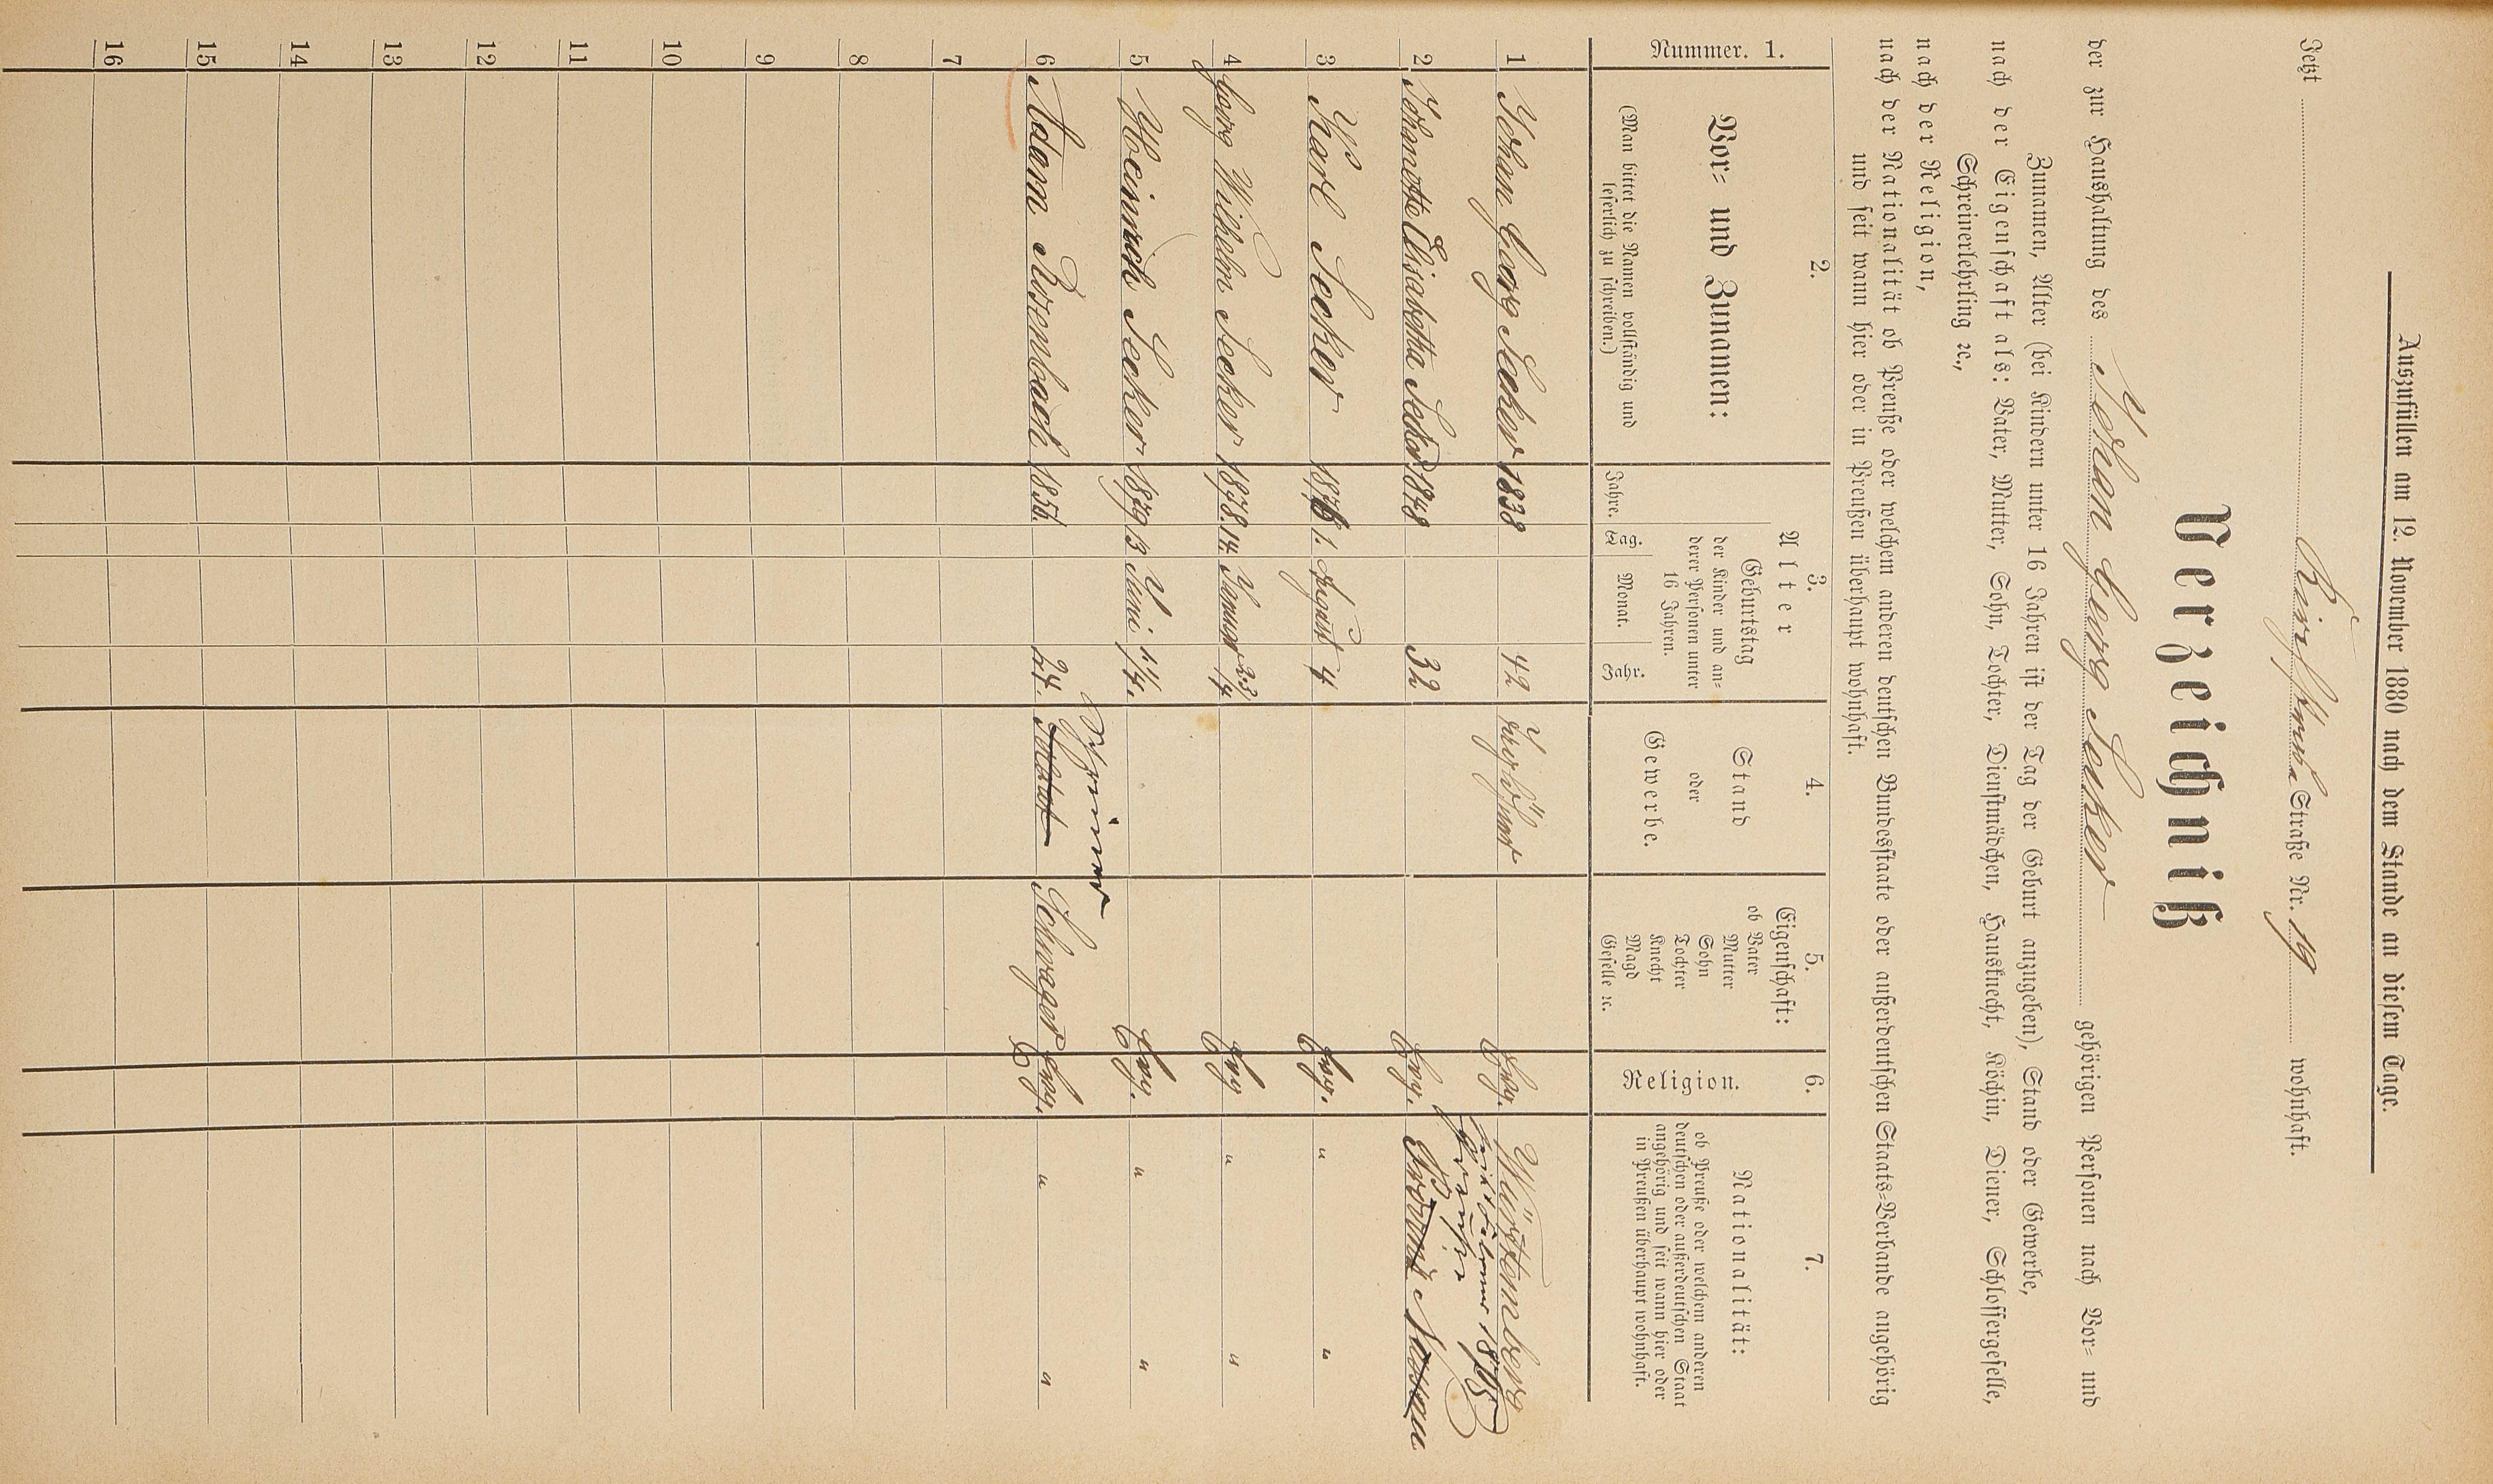 Auszufüllen am 12. November 1880 nach dem Stande an diesem Tage.
Jetzt Straße Nr. 19 wohnhaft.
Verzeichniß
der zur Haushaltung des Johan Georg Secker gehörigen Personen nach Vor= und
Zunamen, Alter (bei Kindern unter 16 Jahren ist der Tag der Geburt anzugeben), Stand oder Gewerbe,
nach der Eigenschaft als: Vater, Mutter, Sohn, Tochter, Dienstmädchen, Hausknecht, Köchin, Diener, Schlossergeselle,
Schreinerlehrling ꝛc.,
nach der Religion,
nach der Nationalität ob Preuße oder welchem anderen deutschen Bundesstaate oder außerdeutschen Staats=Verbande angehörig
und seit wann hier oder in Preußen überhaupt wohnhaft.
Nummer. 1.
2.
Vor= und Zunamen:
(Man bittet die Namen vollständig und
leserlich zu schreiben.)
3.
Alter
Geburtstag
der Kinder und an=
derer Personen unter
16 Jahren.
Jahre. Tag. Monat. Jahr.
4.
Stand
oder
Gewerbe.
5.
Eigenschaft:
ob Vater
Mutter
Sohn
Tochter
Knecht
Magd
Geselle ꝛc.
6.
Religion.
7.
Nationalität:
ob Preuße oder welchem anderen
deutschen oder außerdeutschen Staat
angehörig und seit wann hier oder
in Preußen überhaupt wohnhaft.
1 Johan Georg Secker 1838 42 Evg. Würtemberg
1865
Preuße
2 Elisabetha Secker 1848 32 Evg. Nassau
3 Karl Secker 1876 1. August 4 Evg. " "
4 Georg Wilhelm Secker 1878. 14. Januar 2 3/4 Evg " "
5 Heinrich Secker 1879 13 Juni 1 1/4. Evg. " "
Schreiner
6 Adam 1856. 24. Schwager Evg. " "
7
8
9
10
11
12
13
14
15
16